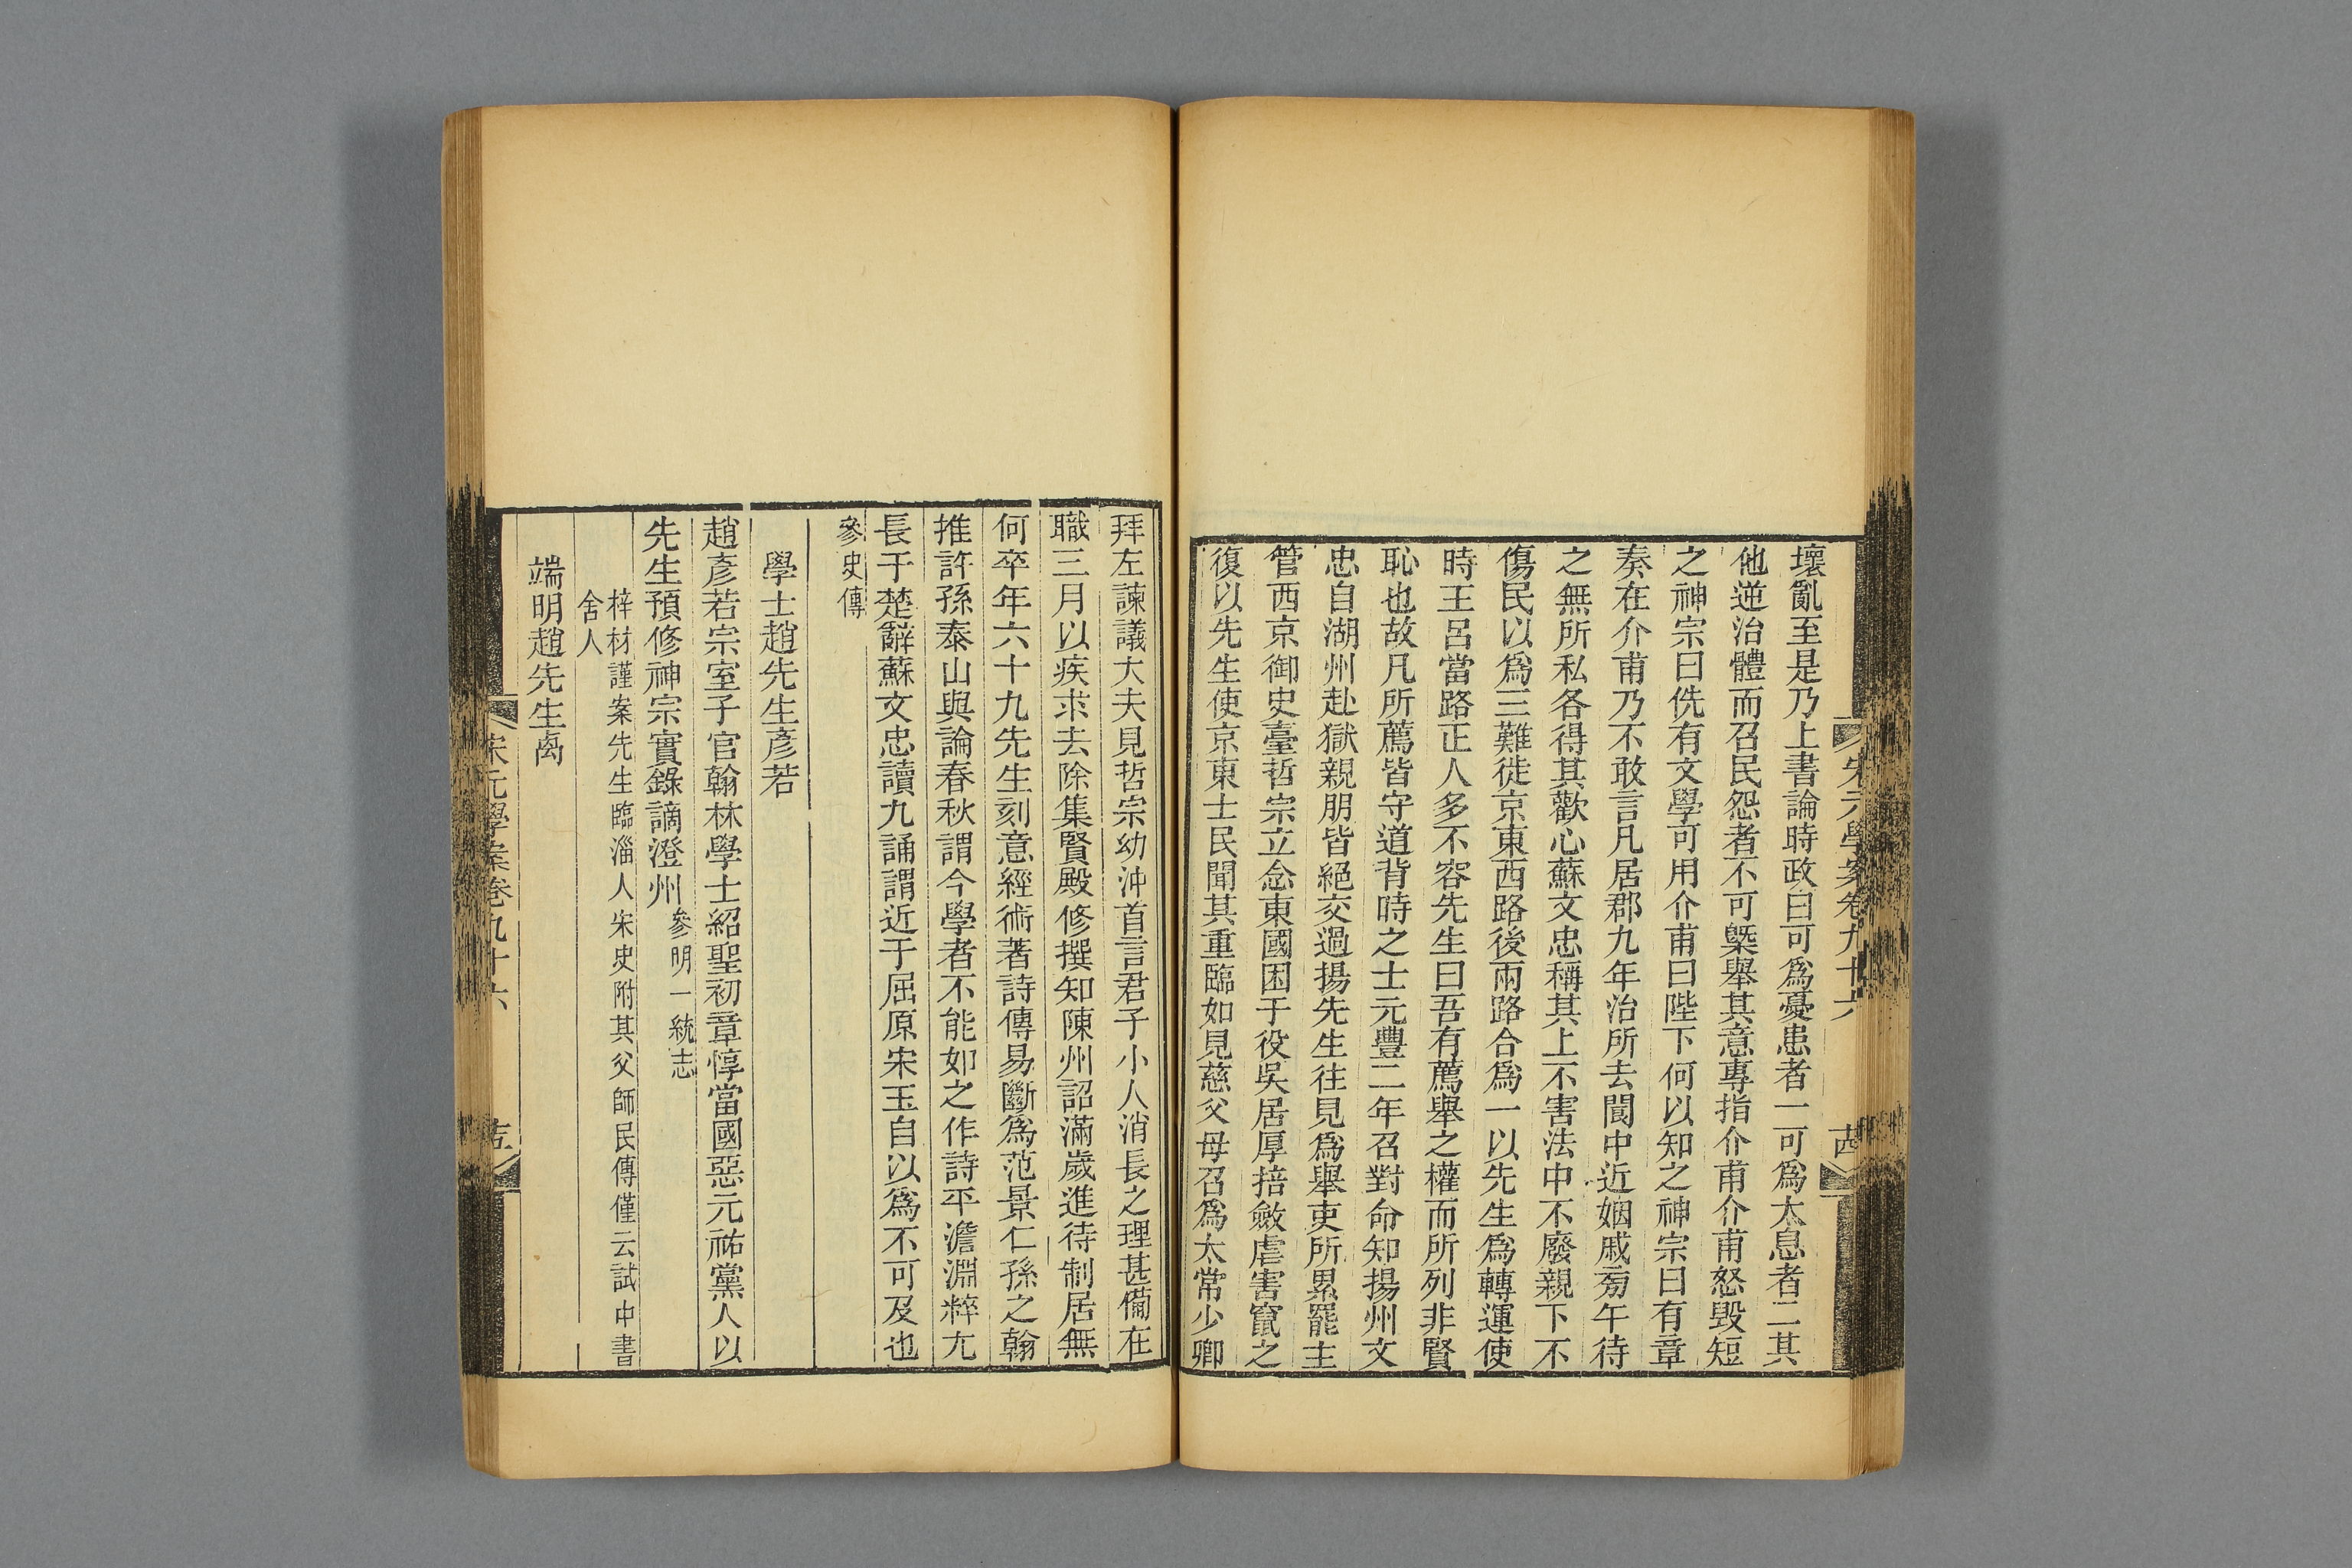 壞亂至是乃上書論時政曰可爲憂患者一可爲太息者二其
他逆治體而召民怨者不可槩舉其意專指介甫介甫怒毀短
之神宗曰侁有文學可用介甫曰陛下何以知之神宗曰有章
奏在介甫乃不敢言凡居郡九年治所去閬中近姻戚旁午待
之無所私各得其歡心蘇文忠稱其上不害法中不廢親下不
傷民以爲三難徙京東西路後兩路合爲一以先生爲轉運使
時王呂當路正人多不容先生曰吾有薦舉之權而所列非賢
恥也故凡所薦皆守道背時之士元豐二年召對命知揚州文
忠自湖州赴獄親朋皆絕交過揚先生往見爲舉吏所累罷主
管西京御史臺哲宗立念東國困于役吳居厚掊斂虐害竄之
復以先生使京東士民聞其重臨如見慈父母召爲太常少卿
宋元學案卷九十六
拜左諫議大夫見哲宗幼沖首言君子小人消長之理甚備在
職三月以疾求去除集賢殿修撰知陳州詔滿歲進待制居無
何卒年六十九先生刻意經術著詩傳易斷爲范景仁孫之翰
推許孫泰山與論春秋謂今學者不能如之作詩平澹淵粹尤
長于楚辭蘇文忠讀九誦謂近于屈原宋玉自以爲不可及也
參史傳
學士趙先生彥若
趙彥若宗室子官翰林學士紹聖初章惇當國惡元祐黨人以
先生預修神宗實錄謫澄州參明一統志
梓材謹案先生臨淄人宋史附其父師民傳僅云試中書
舍人
端明趙先生卨
宋元學案卷九十六